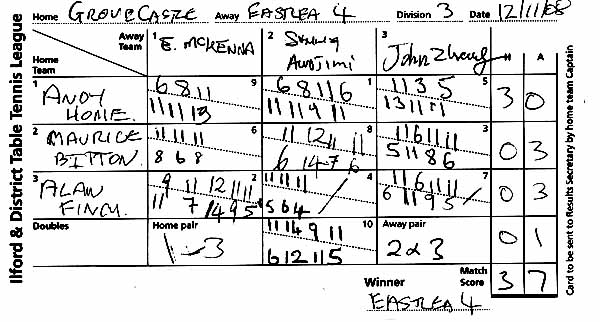 Ilford & District Table Tennis League
Home GROVECASTLE Away EASTLEA 4 Division 3 Date 12/11/08
Away Team 1 E. MCKENNA 2 3 John Zheng H A
Home Team
1 ANDY HOME. 9 6 8 11 11 11 13 1 6 8 11 6 11 11 9 11 5 11 3 5 13 11 11 3 0
2 MAURICE BITTON. 6 11 11 11 8 6 8 8 11 12 11 11 6 14 7 6 3 11 6 11 11 5 11 8 6 0 3
3 ALAN FINCH. 2 9 11 12 11 11 11 7 14 9 5 4 11 11 11 5 6 4 7 11 6 11 11 6 11 9 5 0 3
Doubles Home pair 1 - 3 10 11 14 9 11 6 12 11 5 Away pair 2 & 3 0 1
Winner EASTLEA 4 Match Score 3 7
Card to be sent to Results Secretary by home team Captain